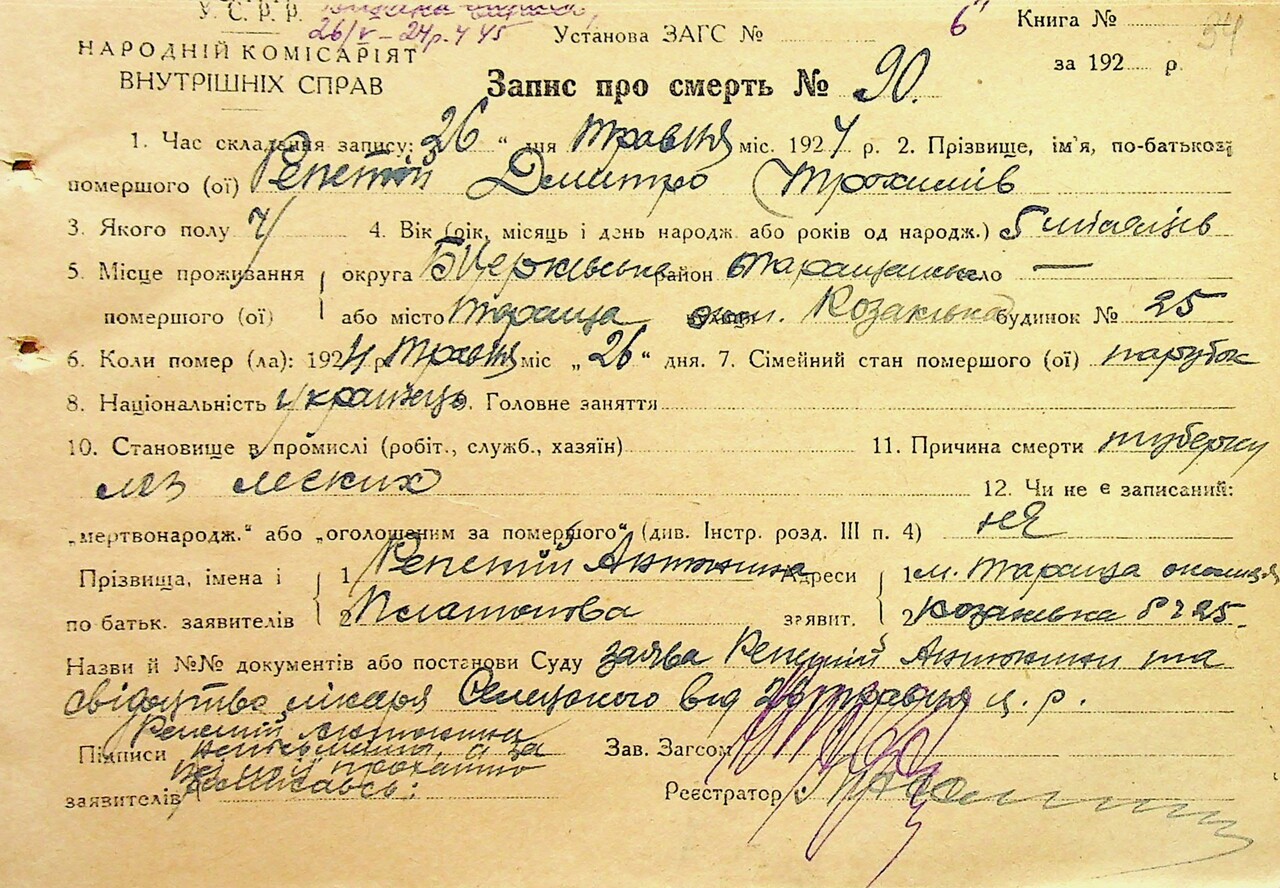 У. С. Р. Р.
26/V–24р. Ч 45
Установа ЗАГС №
6
Книга №
34
НАРОДНІЙ КОМІСАРІЯТ
ВНУТРІШНІХ СПРАВ
за 192 р.
Запис про смерть № 90.
1. Час складання запису: 26 " дня травня міс. 1924 р. 2. Прізвище, ім'я, по-батькові
помершого (ої) Репетій Дмитро Трохимів
3. Якого полу ч 4. Вік (рік, місяць і день народж. або років од народж.) 5 місяців
5. Місце проживання округа Б Церківська район Таращанськ село —
помершого (ої) або місто Тараща Козакська будинок № 25
6. Коли помер (ла): 1924 р. травня міс „ 26 " дня. 7. Сімейний стан помершого (ої) парубок
8. Національність українець. Головне заняття
10. Становище в промислі (робіт., служб., хазяїн) 11. Причина смерти туберку
льоз легких
12. Чи не є записаний:
„мертвонародж." або „оголошеним за помершого" (див. Інстр. розд. III п. 4) не
Прізвища, імена і 1 Репетій Антонина Адреси 1 м. Тараща околиця
по батьк. заявителів 2 Платонова заявит. 2 Козакська 8 ч 25.
Назви й №№ документів або постанови Суду заява Репетій Антонини та
свідоцтво лікаря Селецького від 26 травня ц. р.
Репетій Антонина
Підписи неписьменна, а за Зав. Загсом
неї й проханню
заявителів расписавсь: Реєстратор: